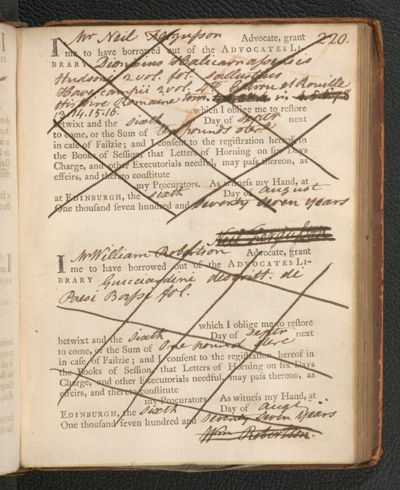 220.
Mr Neil Ferguson Advocate, grant
I me to have borrowed out of the ADVOCATES LI-
BRARY Dionisius Halicarnassensis
Hudsoni 2 vol. fol. Sallustius
Havercampii 2 vol. 4to Catrou et Rouille
Histoire Romaine tom.
12.14.15.16. which I oblige me to restore
betwixt and the Sixth Day of Septer next
to come, or the Sum of pounds ster
in case of Failzie; and I consent to the registration hereof in
the Books of Session, that Letters of Horning on six Days
Charge, and other Executorials needful, may pass thereon, as
effeirs, and thereto constitute
my Procurators. As witness my Hand, at
at EDINBURGH, the Sixth Day of August
One thousand seven hundred and Seventy Seven years
Neil Ferguson
Mr William Robertson Advocate, grant
I me to have borrowed out of the ADVOCATES LI-
BRARY Guicciardini descritt. di
Paesi Bassi fol.
which I oblige me to restore
betwixt and the Sixth Day of Septer next
to come, or the Sum of One pound ster
in case of Failzie; and I consent to the registration hereof in
the Books of Session, that Letters of Horning on six Days
Charge, and other Executorials needful, may pass thereon, as
effeirs, and thereto constitute
my Procurators. As witness my Hand, at
EDINBURGH, the Sixth Day of Augt
One thousand seven hundred and Seventy Seven years
Wm Robertson.